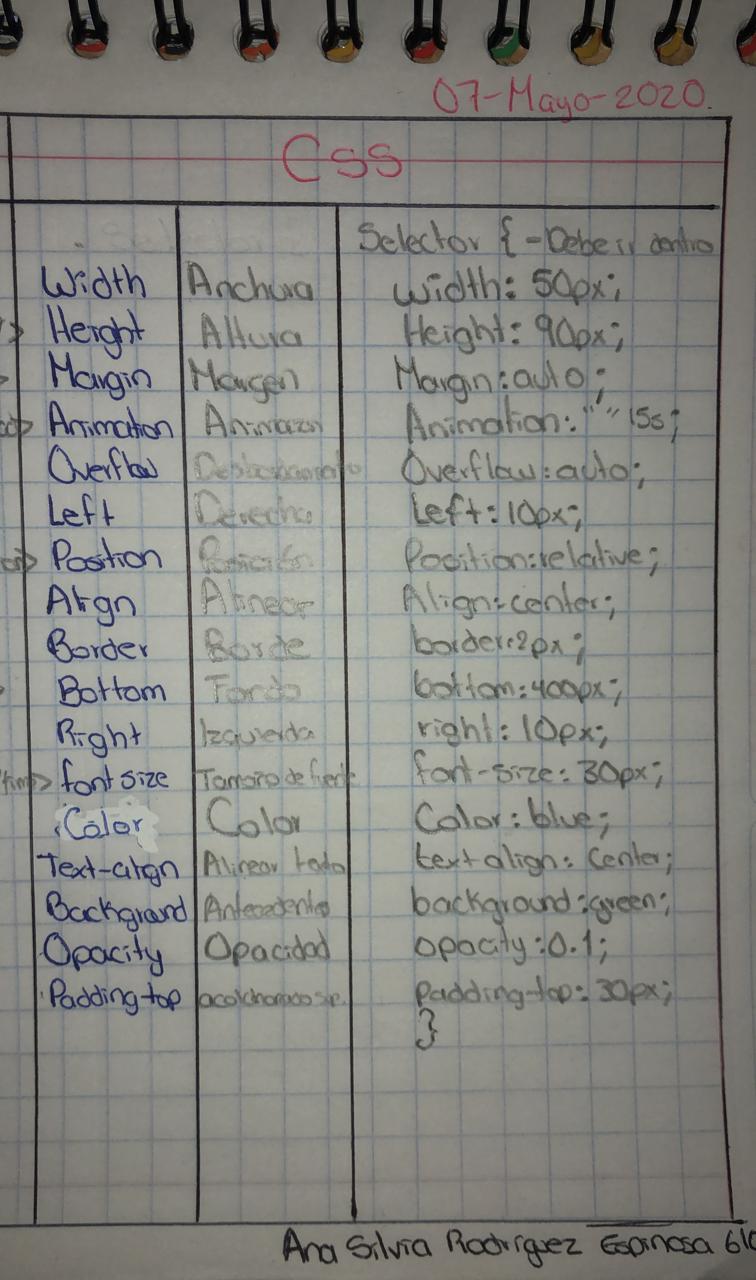 07-Mayo-2020.
CSS
Selector {-Debe ir dentro
Width Anchura width: 50px;
Height Altura Height: 90px;
Margin Margen Margin:auto;
Animation Animazn Animation:"" 15s;
Overflow Overflow:auto;
Left Derecha Left:10px;
Position Posición Position:relative;
Align Alinear Align:center;
Border Borde border:2px;
Bottom Fondo bottom:400px;
Right Izquierda right: 10px;
font size Tamaño de fuente font-size: 30px;
Color Color Color: blue;
Text-align Alinear todo text align: Center;
Background Antecedente background:green;
Opacity Opacidad opacity:0.1;
Padding-top padding-top: 30px;
}
Ana Silvia Rodríguez Espinosa